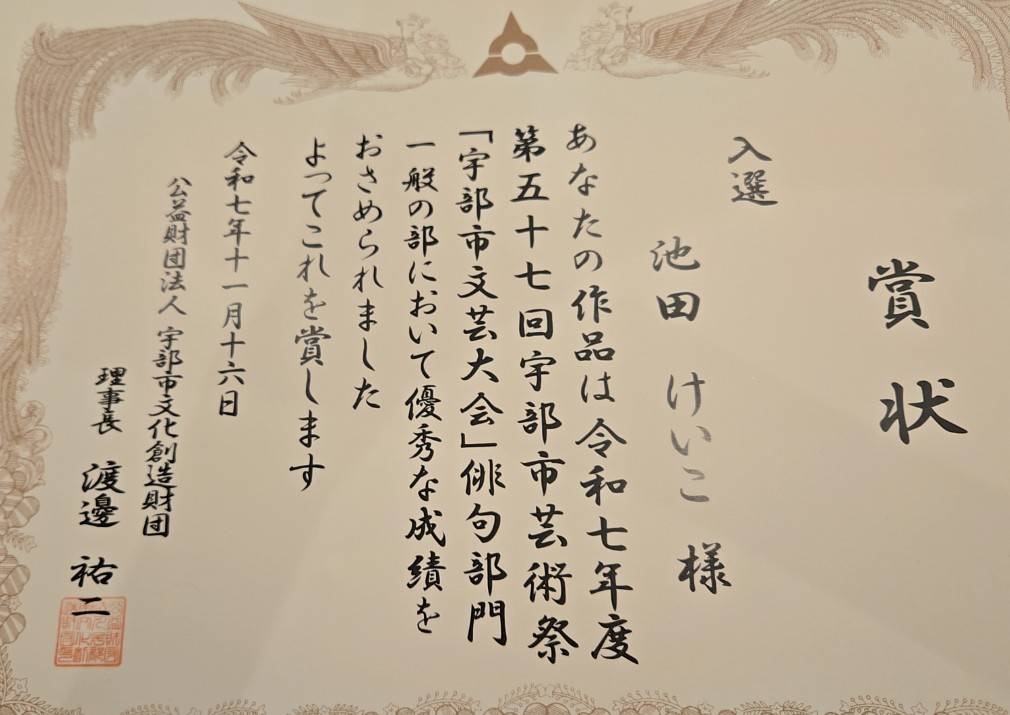 賞状
入選
池田 けいこ 様
あなたの作品は令和七年度
第五十七回宇部市芸術祭
「宇部市文芸大会」俳句部門
一般の部において優秀な成績を
おさめられました
よってこれを賞します
令和七年十一月十六日
公益財団法人 宇部市文化創造財団
理事長 渡邊 祐二